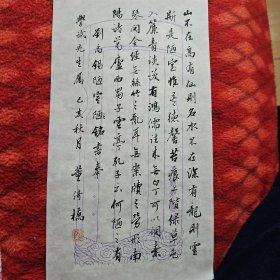 山不在高有仙則名水不在深有龍則靈
斯是陋室惟吾德馨苔痕上階綠草色
入簾青談笑有鴻儒往来無白丁可以調素
琴閱金經無絲竹之亂耳無案牘之勞形南
陽諸葛廬西蜀子雲亭孔子云何陋之有
劉禹錫陋室陋銘書奉
學斌先生属 己亥秋月 董